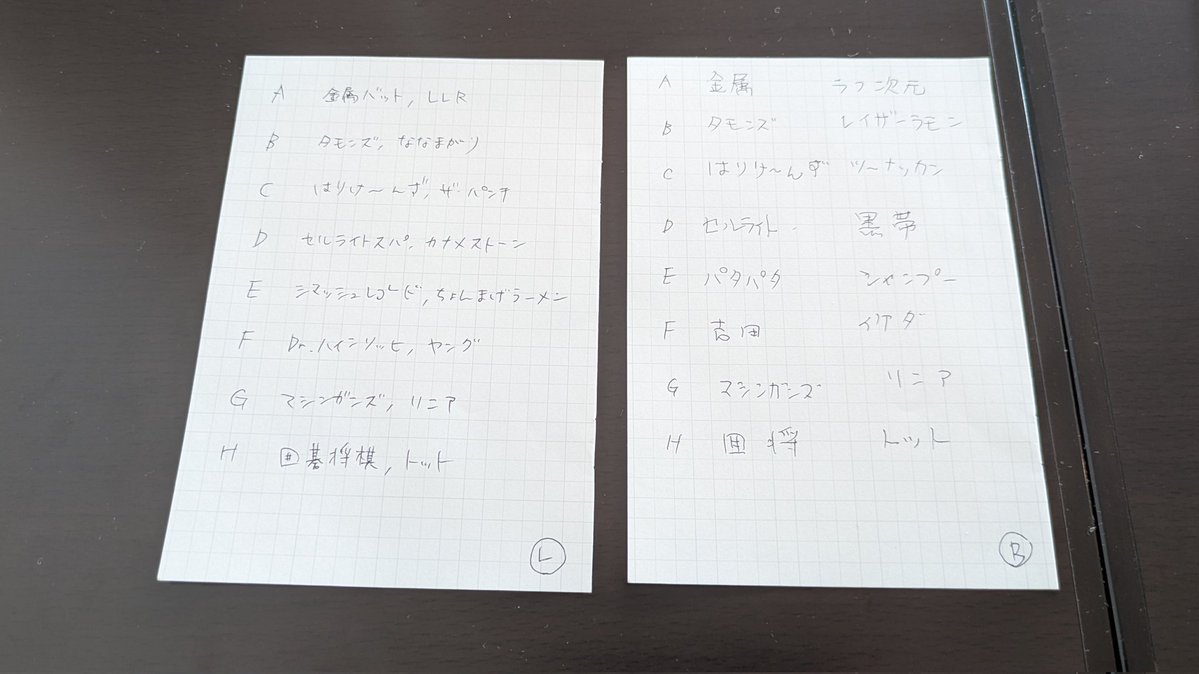 A 金属バット, LLR
B タモンズ, ななまがり
C はりけ〜んず, ザ・パンチ
D セルライトスパ, カナメストーン
E シマッシュレコード, ちょんまげラーメン
F Dr.ハインリッヒ, ヤング
G マシンガンズ, リニア
H 囲碁将棋, トット
L
A 金属 ラフ次元
B タモンズ レイザーラモン
C はりけ〜んず ツーナッカン
D セルライト 黒帯
E パタパタ シャンプー
F 吉田 イケダ
G マシンガンズ リニア
H 囲将 トット
B